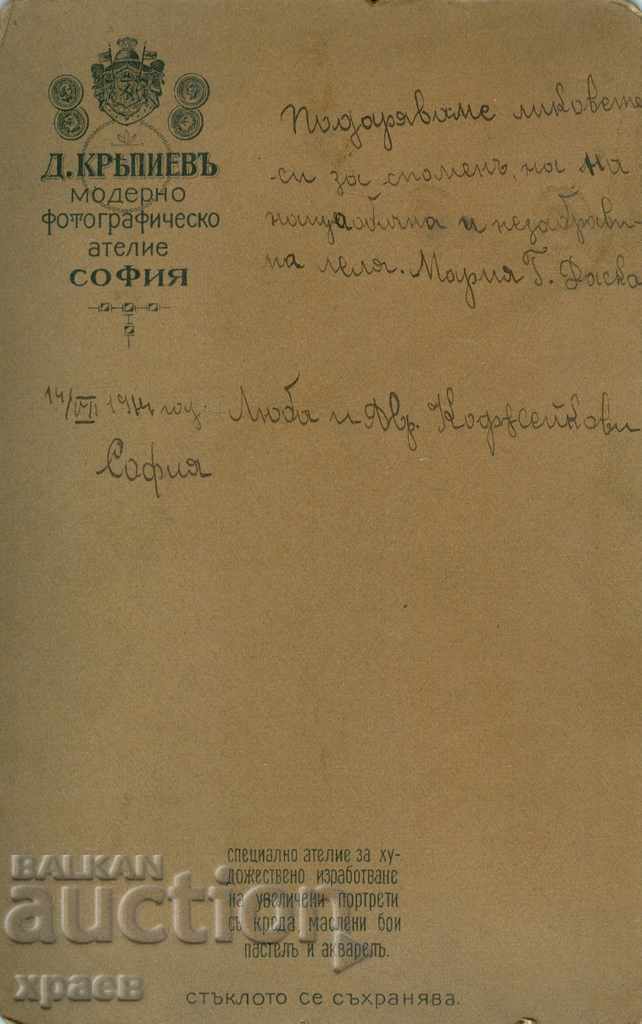 Д. КРѢПИЕВЪ
МОДЕРНО
ФОТОГРАФИЧЕСКО
АТЕЛИЕ
СОФИЯ
Подаряваме ликовете
си за споменъ, на на
и незабрави-
ма леля. Мария Г. Даска
14/VII 19 год. Люба и Авр. Коджейкови
София
СПЕЦИАЛНО АТЕЛИЕ ЗА ХУ-
ДОЖЕСТВЕНО ИЗРАБОТВАНЕ
НА УВЕЛИЧЕНИ ПОРТРЕТИ
СЪ КРЕДА, МАСЛЕНИ БОИ
ПАСТЕЛЪ И АКВАРЕЛЪ.
СТЪКЛОТО СЕ СЪХРАНЯВА.
BALKAN
auction
храев